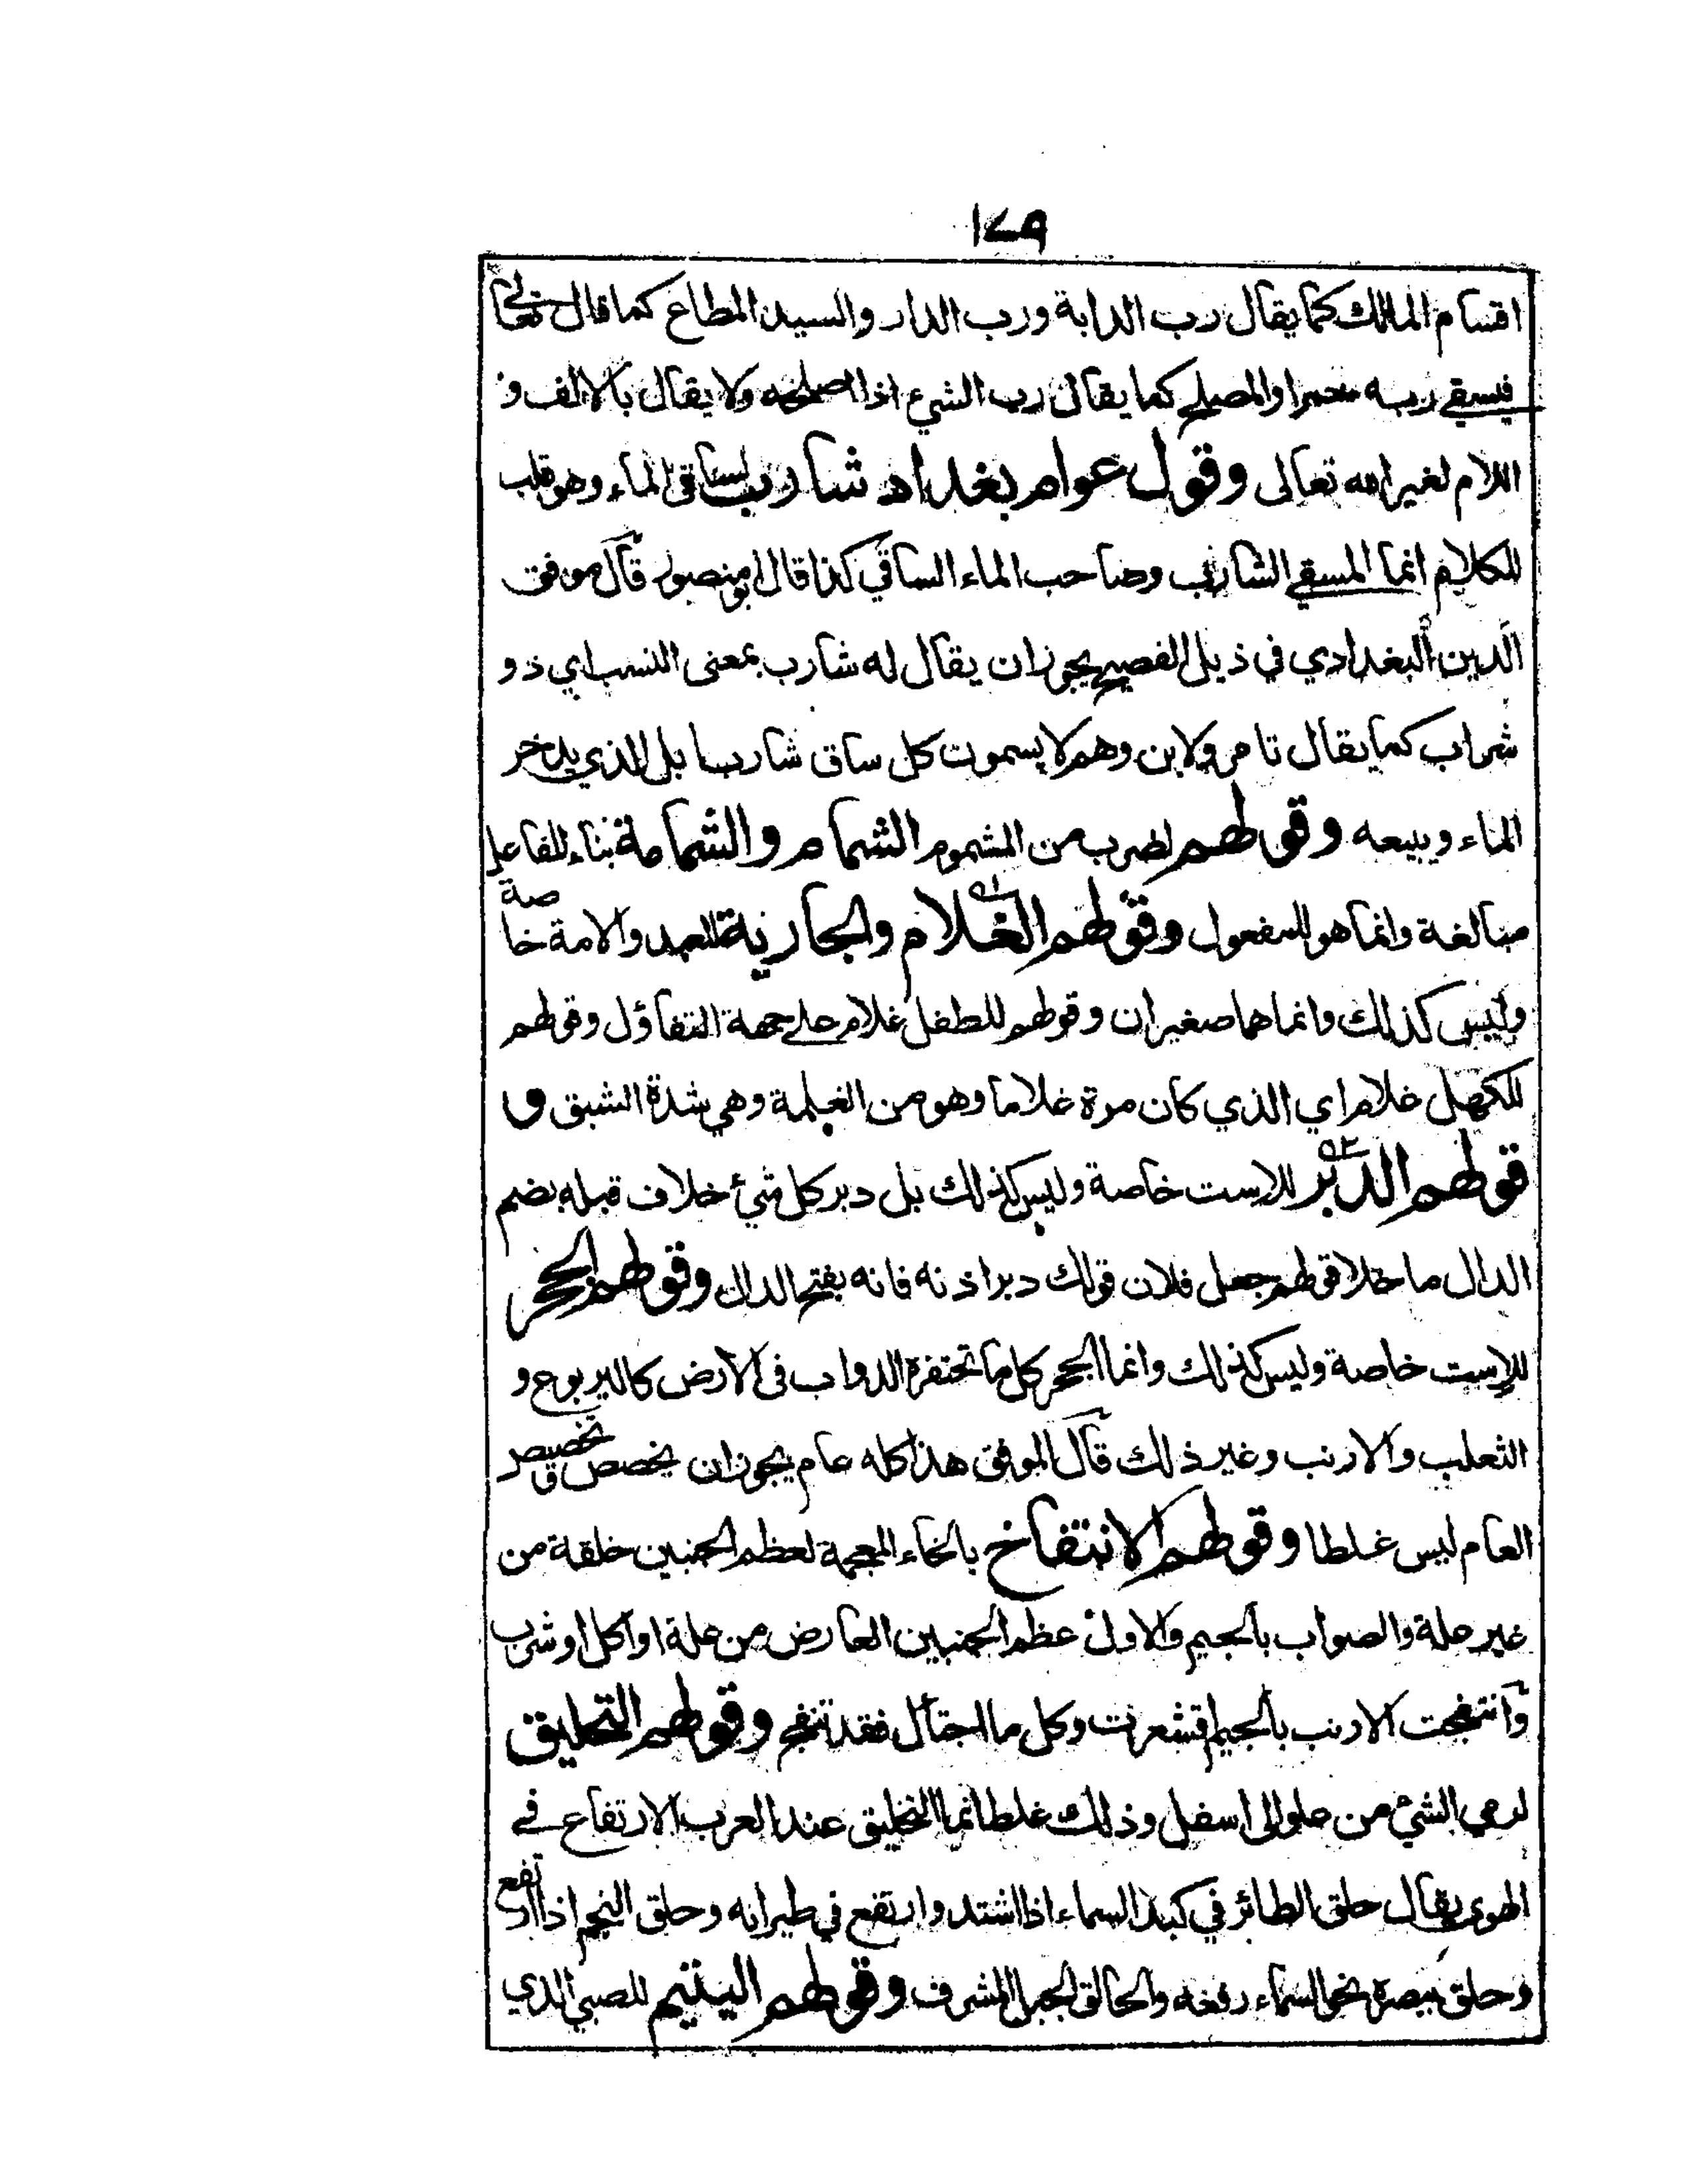 ١٤٩
اقسام المالك كما يقال رب الدابة ورب الدار والسيد المطاع كما قال تعالى
فيسقي ربه خمرا والمصلح كما يقال رب الشيء اذا اصلحه ولا يقال بالالف و
اللام لغير الله تعالى وقول عوام بغداد شارب لساقي الماء وهو قلب
للكلام انما المسقي الشارب وصاحب الماء الساقي كذا قال ابو منصور قال موفق
الدين البغدادي في ذيل الفصيح يجوز ان يقال له شارب بمعنى النسب اي ذو
شراب كما يقال تامر ولابن وهم لا يسمون كل ساق شاربا بل الذي يدخر
الماء ويبيعه وقولهم لضرب من المشموم الشمام والشمامة بناء للفاعل
مبالغة وانما هو للمفعول وقولهم الغلام والجارية للعبد والامة خاصة
وليس كذلك وانما هما صغيران وقولهم للطفل غلام علي جهة التفاؤل وقولهم
للكهل غلام اي الذي كان مرة غلاما وهو من الغلمة وهي شدة الشبق و
قولهم الدبر للاست خاصة وليس كذلك بل دبر كل شئ خلاف قبله بضم
الدال ما خلا قولهم جعل فلان قولك دبر اذنه فانه بفتح الدال وقولهم الجحر
للاست خاصة وليس كذلك وانما الجحر كل ما تحتفره الدواب في الارض كاليربوع و
الثعلب والارنب وغير ذلك قال الموفق هذا كله عام يجوز ان يخصص ق تخصيص
العام ليس غلطا وقولهم الانتفاخ بالخاء المعجمة لعظم الجنبين خلقة من
غير علة والصواب بالجيم والاول عظم الجنبين العارض من علة او اكل او شرب
وانتفجت الارنب بالجيم اقشعرت وكل ما اجتال فقد تنفج وقولهم التحليق
لرمي الشئ من علو الى اسفل وذلك غلط انما التحليق عند العرب الارتفاع في
الهوي يقال حلق الطائر في كبد السماء اذا اشتد وارتفع في طيرانه وحلق النجم اذا ارتفع
وحلق ببصره نحو السماء رفعه والحالق الجبل المشرف وقولهم اليتيم للصبي الذي